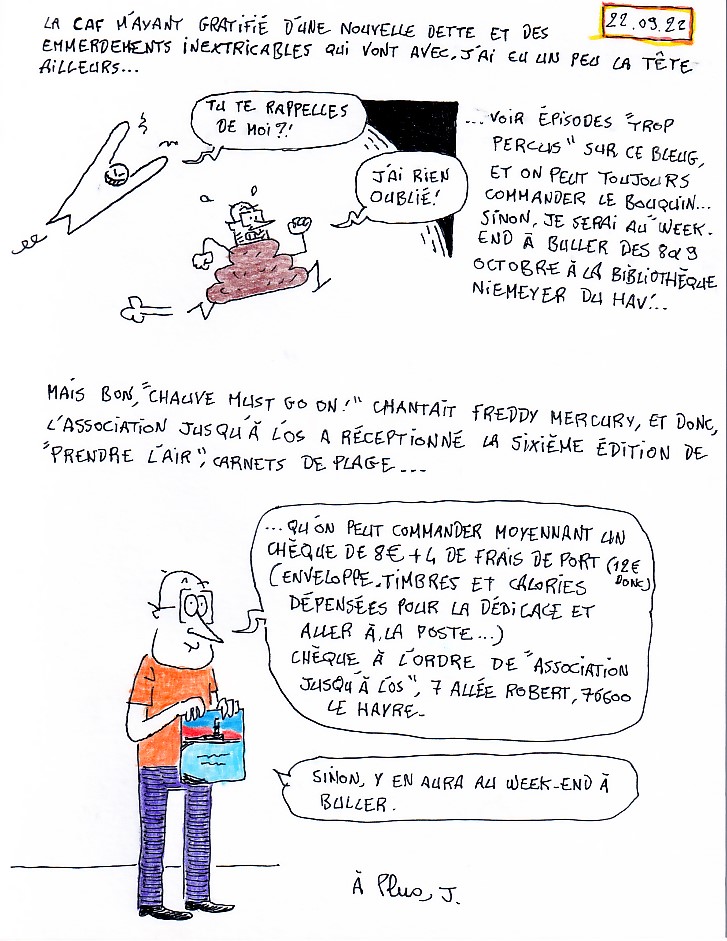 22.09.22
LA CAF M'AYANT GRATIFIÉ D'UNE NOUVELLE DETTE ET DES
EMMERDEMENTS INEXTRICABLES QUI VONT AVEC, J'AI EU UN PEU LA TÊTE
AILLEURS...
TU TE RAPPELLES
DE MOI?!
J'AI RIEN
OUBLIÉ!
...VOIR ÉPISODES "TROP
PERCUS" SUR CE BLEUG,
ET ON PEUT TOUJOURS
COMMANDER LE BOUQUIN...
SINON, JE SERAI AU WEEK-
END À BULLER DES 8 & 9
OCTOBRE À LA BIBLIOTHÈQUE
NIEMEYER DU HAV'...
MAIS BON, "CHAUVE MUST GO ON!" CHANTAIT FREDDY MERCURY, ET DONC,
L'ASSOCIATION JUSQU'À L'OS A RÉCEPTIONNÉ LA SIXIÈME ÉDITION DE
"PRENDRE L'AIR", CARNETS DE PLAGE...
...QU'ON PEUT COMMANDER MOYENNANT UN
CHÈQUE DE 8€ + 4 DE FRAIS DE PORT (12€
DONC)
(ENVELOPPE, TIMBRES ET CALORIES
DÉPENSÉES POUR LA DÉDICACE ET
ALLER À LA POSTE...)
CHÈQUE À L'ORDRE DE "ASSOCIATION
JUSQU'À L'OS", 7 ALLÉE ROBERT, 76600
LE HAVRE.
SINON, Y EN AURA AU WEEK-END À
BULLER.
À Plus, J.